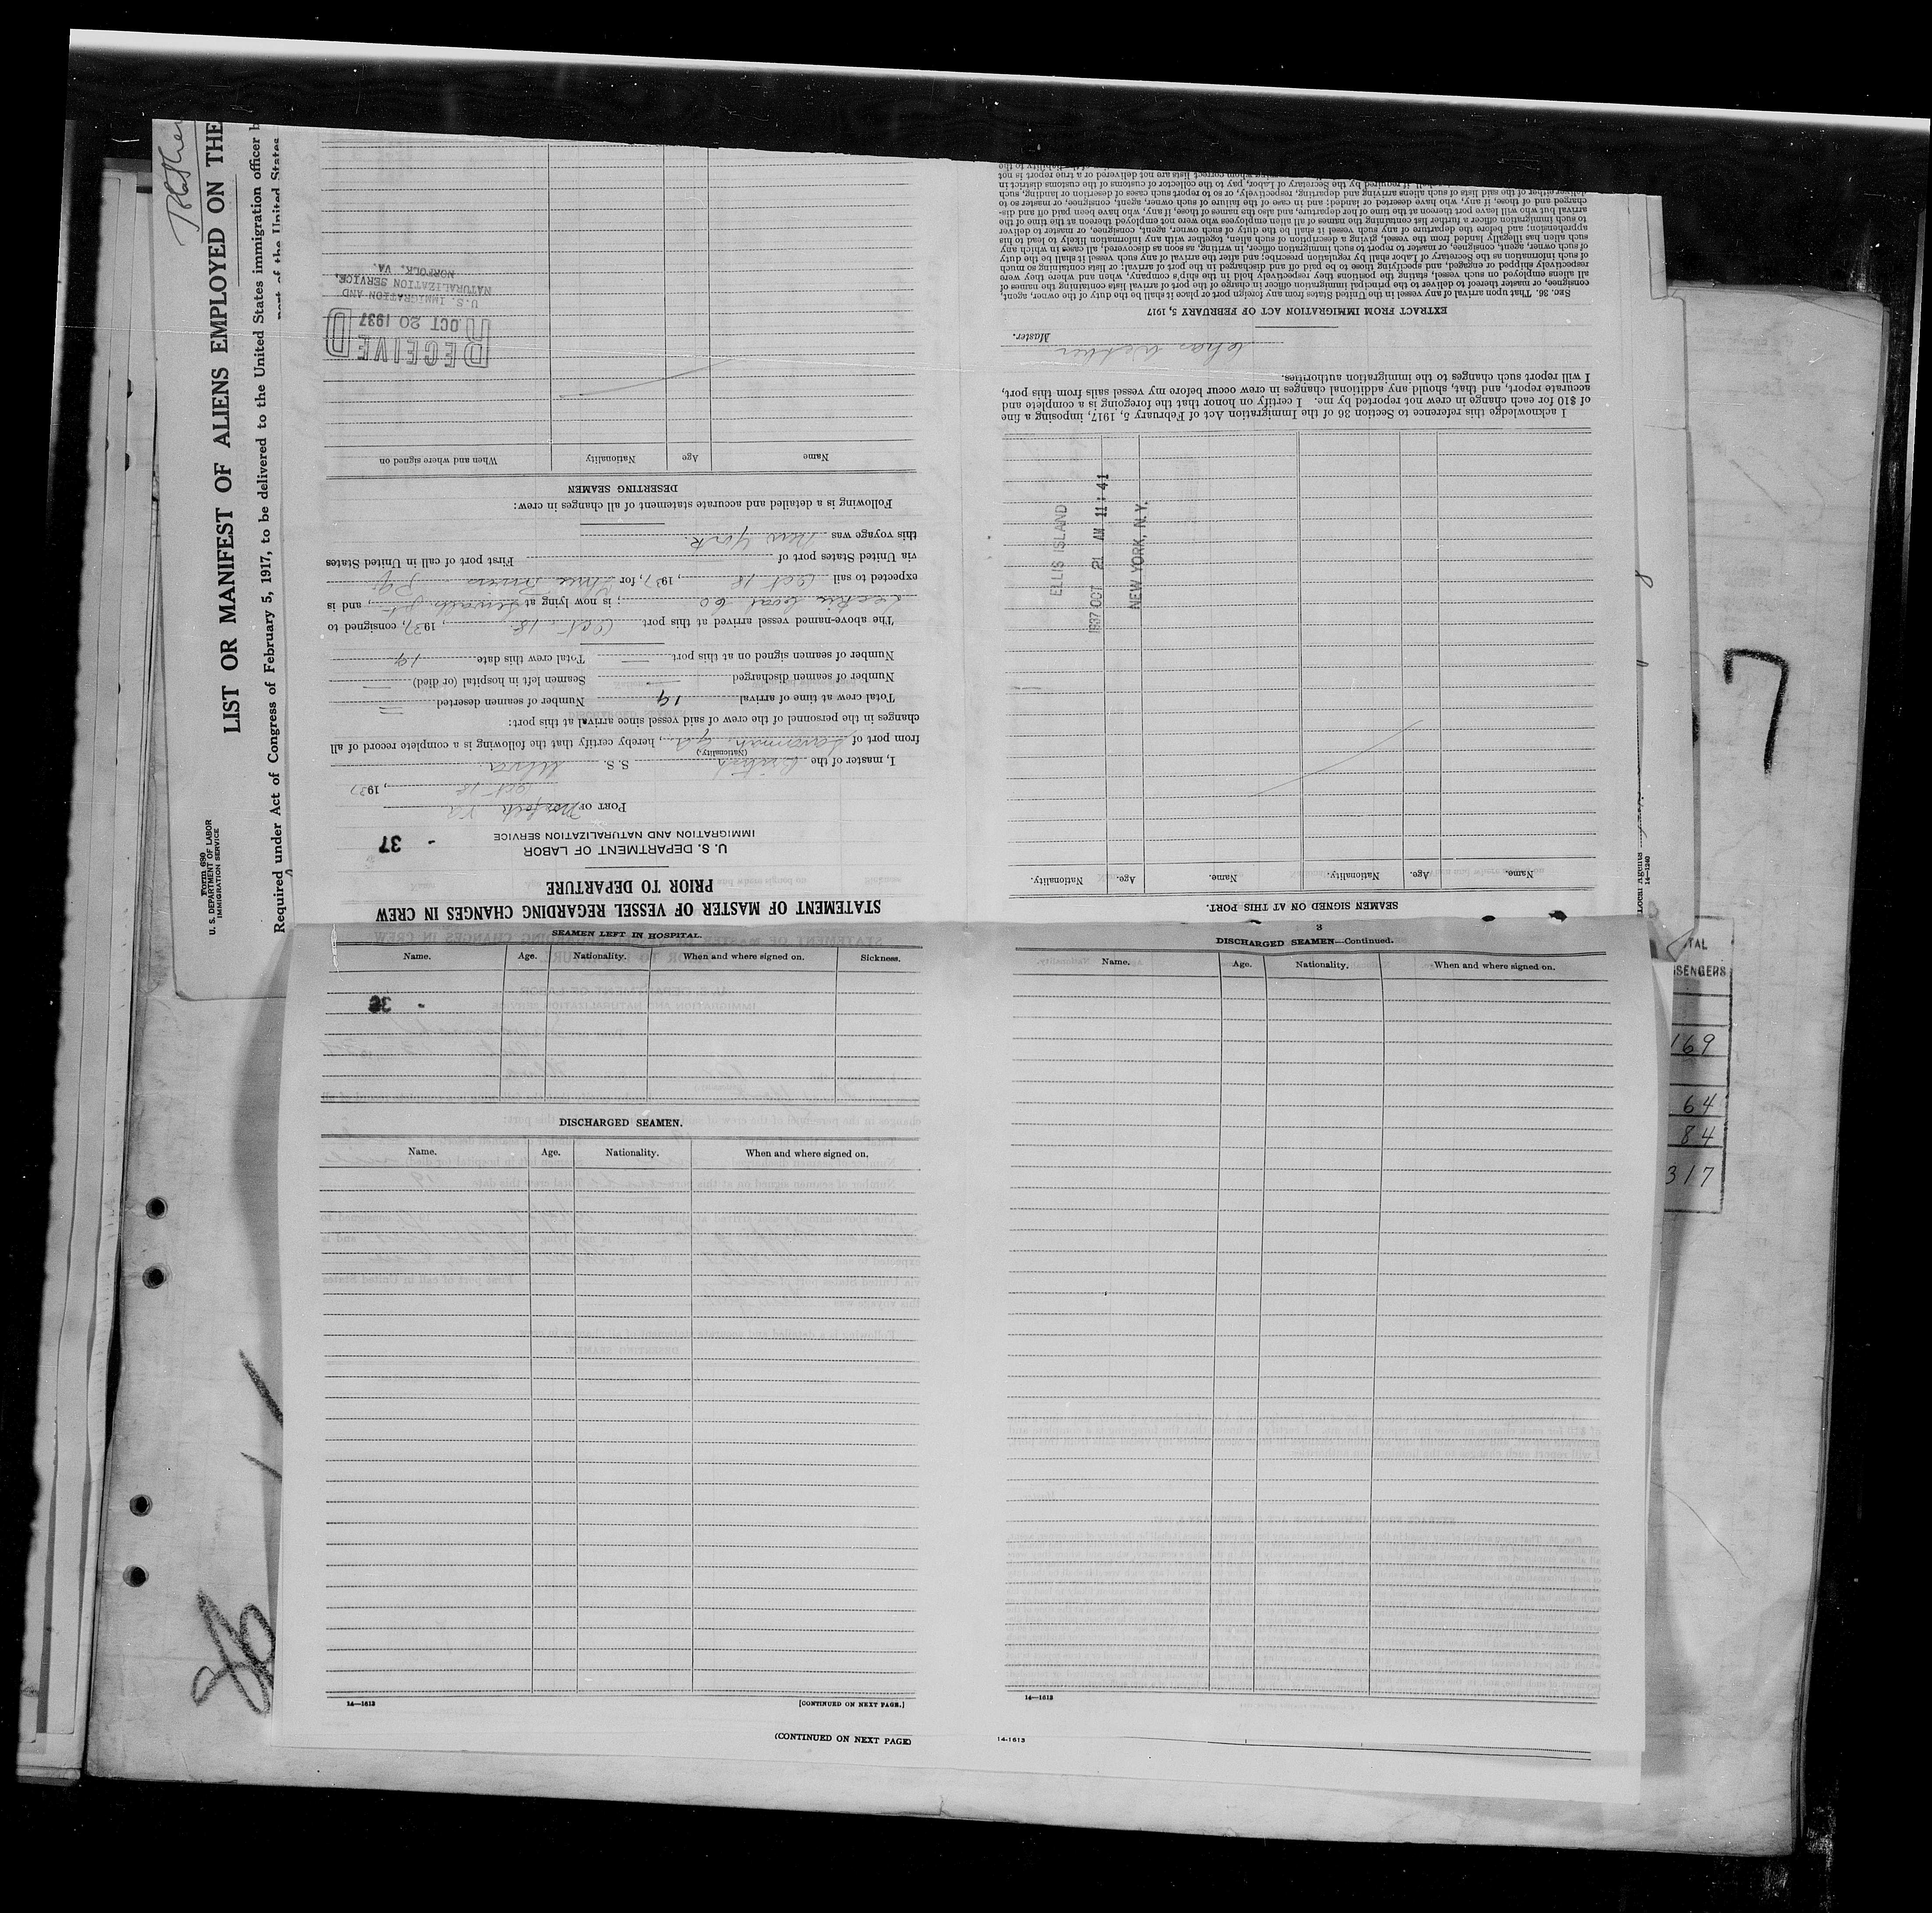 Form 680
U. S. DEPARTMENT OF LABOR
IMMIGRATION SERVICE
LIST OR MANIFEST OF ALIENS EMPLOYED ON THE
Required under Act of Congress of February 5, 1917, to be delivered to the United States immigration officer b
port of the United States
STATEMENT OF MASTER OF VESSEL REGARDING CHANGES IN CREW
PRIOR TO DEPARTURE
U. S. DEPARTMENT OF LABOR
IMMIGRATION AND NATURALIZATION SERVICE
- 37
PORT OF Norfolk Va
Oct 18, 1937
I, master of the British S. S.
(Nationality)
from port of Savannah, Ga, hereby certify that the following is a complete record of all
changes in the personnel of the crew of said vessel since arrival at this port:
Total crew at time of arrival 19 Number of seamen deserted
Number of seamen discharged Seamen left in hospital (or died)
Number of seamen signed on at this port Total crew this date 19
The above-named vessel arrived at this port Oct. 18, 1937, consigned to
; is now lying at Sewalls Pt, and is
expected to sail Oct 18, 1937, for Three Rivers P.Q.
via United States port of First port of call in United States
this voyage was New York
Following is a detailed and accurate statement of all changes in crew:
DESERTING SEAMEN
Name Age Nationality When and where signed on
RECEIVED
OCT 20 1937
U.S. IMMIGRATION AND
NATURALIZATION SERVICE,
NORFOLK, VA.
SEAMEN SIGNED ON AT THIS PORT.
Name. Age. Nationality. Name. Age. Nationality.
ELLIS ISLAND
1937 OCT 21 AM 11:41
NEW YORK, N.Y.
I acknowledge this reference to Section 36 of the Immigration Act of February 5, 1917, imposing a fine
of $10 for each change in crew not reported by me. I certify on honor that the foregoing is a complete and
accurate report, and that, should any additional changes in crew occur before my vessel sails from this port,
I will report such changes to the immigration authorities.
Master.
EXTRACT FROM IMMIGRATION ACT OF FEBRUARY 5, 1917
SEC. 36. That upon arrival of any vessel in the United States from any foreign port or place it shall be the duty of the owner, agent,
consignee, or master thereof to deliver to the principal immigration officer in charge of the port of arrival lists containing the names of
all aliens employed on such vessel, stating the positions they respectively hold in the ship's company, when and where they were
respectively shipped or engaged, and specifying those to be paid off and discharged in the port of arrival; or lists containing so much
of such information as the Secretary of Labor shall by regulation prescribe; and after the arrival of any such vessel it shall be the duty
of such owner, agent, consignee, or master to report to such immigration officer, in writing, as soon as discovered, all cases in which any
such alien has illegally landed from the vessel, giving a description of such alien, together with any information likely to lead to his
apprehension; and before the departure of any such vessel it shall be the duty of such owner, agent, consignee, or master to deliver
to such immigration officer a further list containing the names of all alien employees who were not employed thereon at the time of the
arrival but who will leave port thereon at the time of her departure, and also the names of those, if any, who have been paid off and dis-
charged and of those, if any, who have deserted or landed; and in case of the failure of such owner, agent, consignee, or master so to
deliver either of the said lists of such aliens arriving and departing, respectively, or so to report such cases of desertion or landing, such
if required by the Secretary of Labor, pay to the collector of customs of the customs district in
whom correct lists are not delivered or a true report is not
Local Agents
14—1240
SEAMEN LEFT IN HOSPITAL.
Name. Age. Nationality. When and where signed on. Sickness.
- 36
DISCHARGED SEAMEN.
Name. Age. Nationality. When and where signed on.
14—1613 [CONTINUED ON NEXT PAGE.]
(CONTINUED ON NEXT PAGE)
3
DISCHARGED SEAMEN—Continued.
Name. Age. Nationality. When and where signed on.
14—1613
14-1613
7
TAL
SENGERS
169
64
84
317